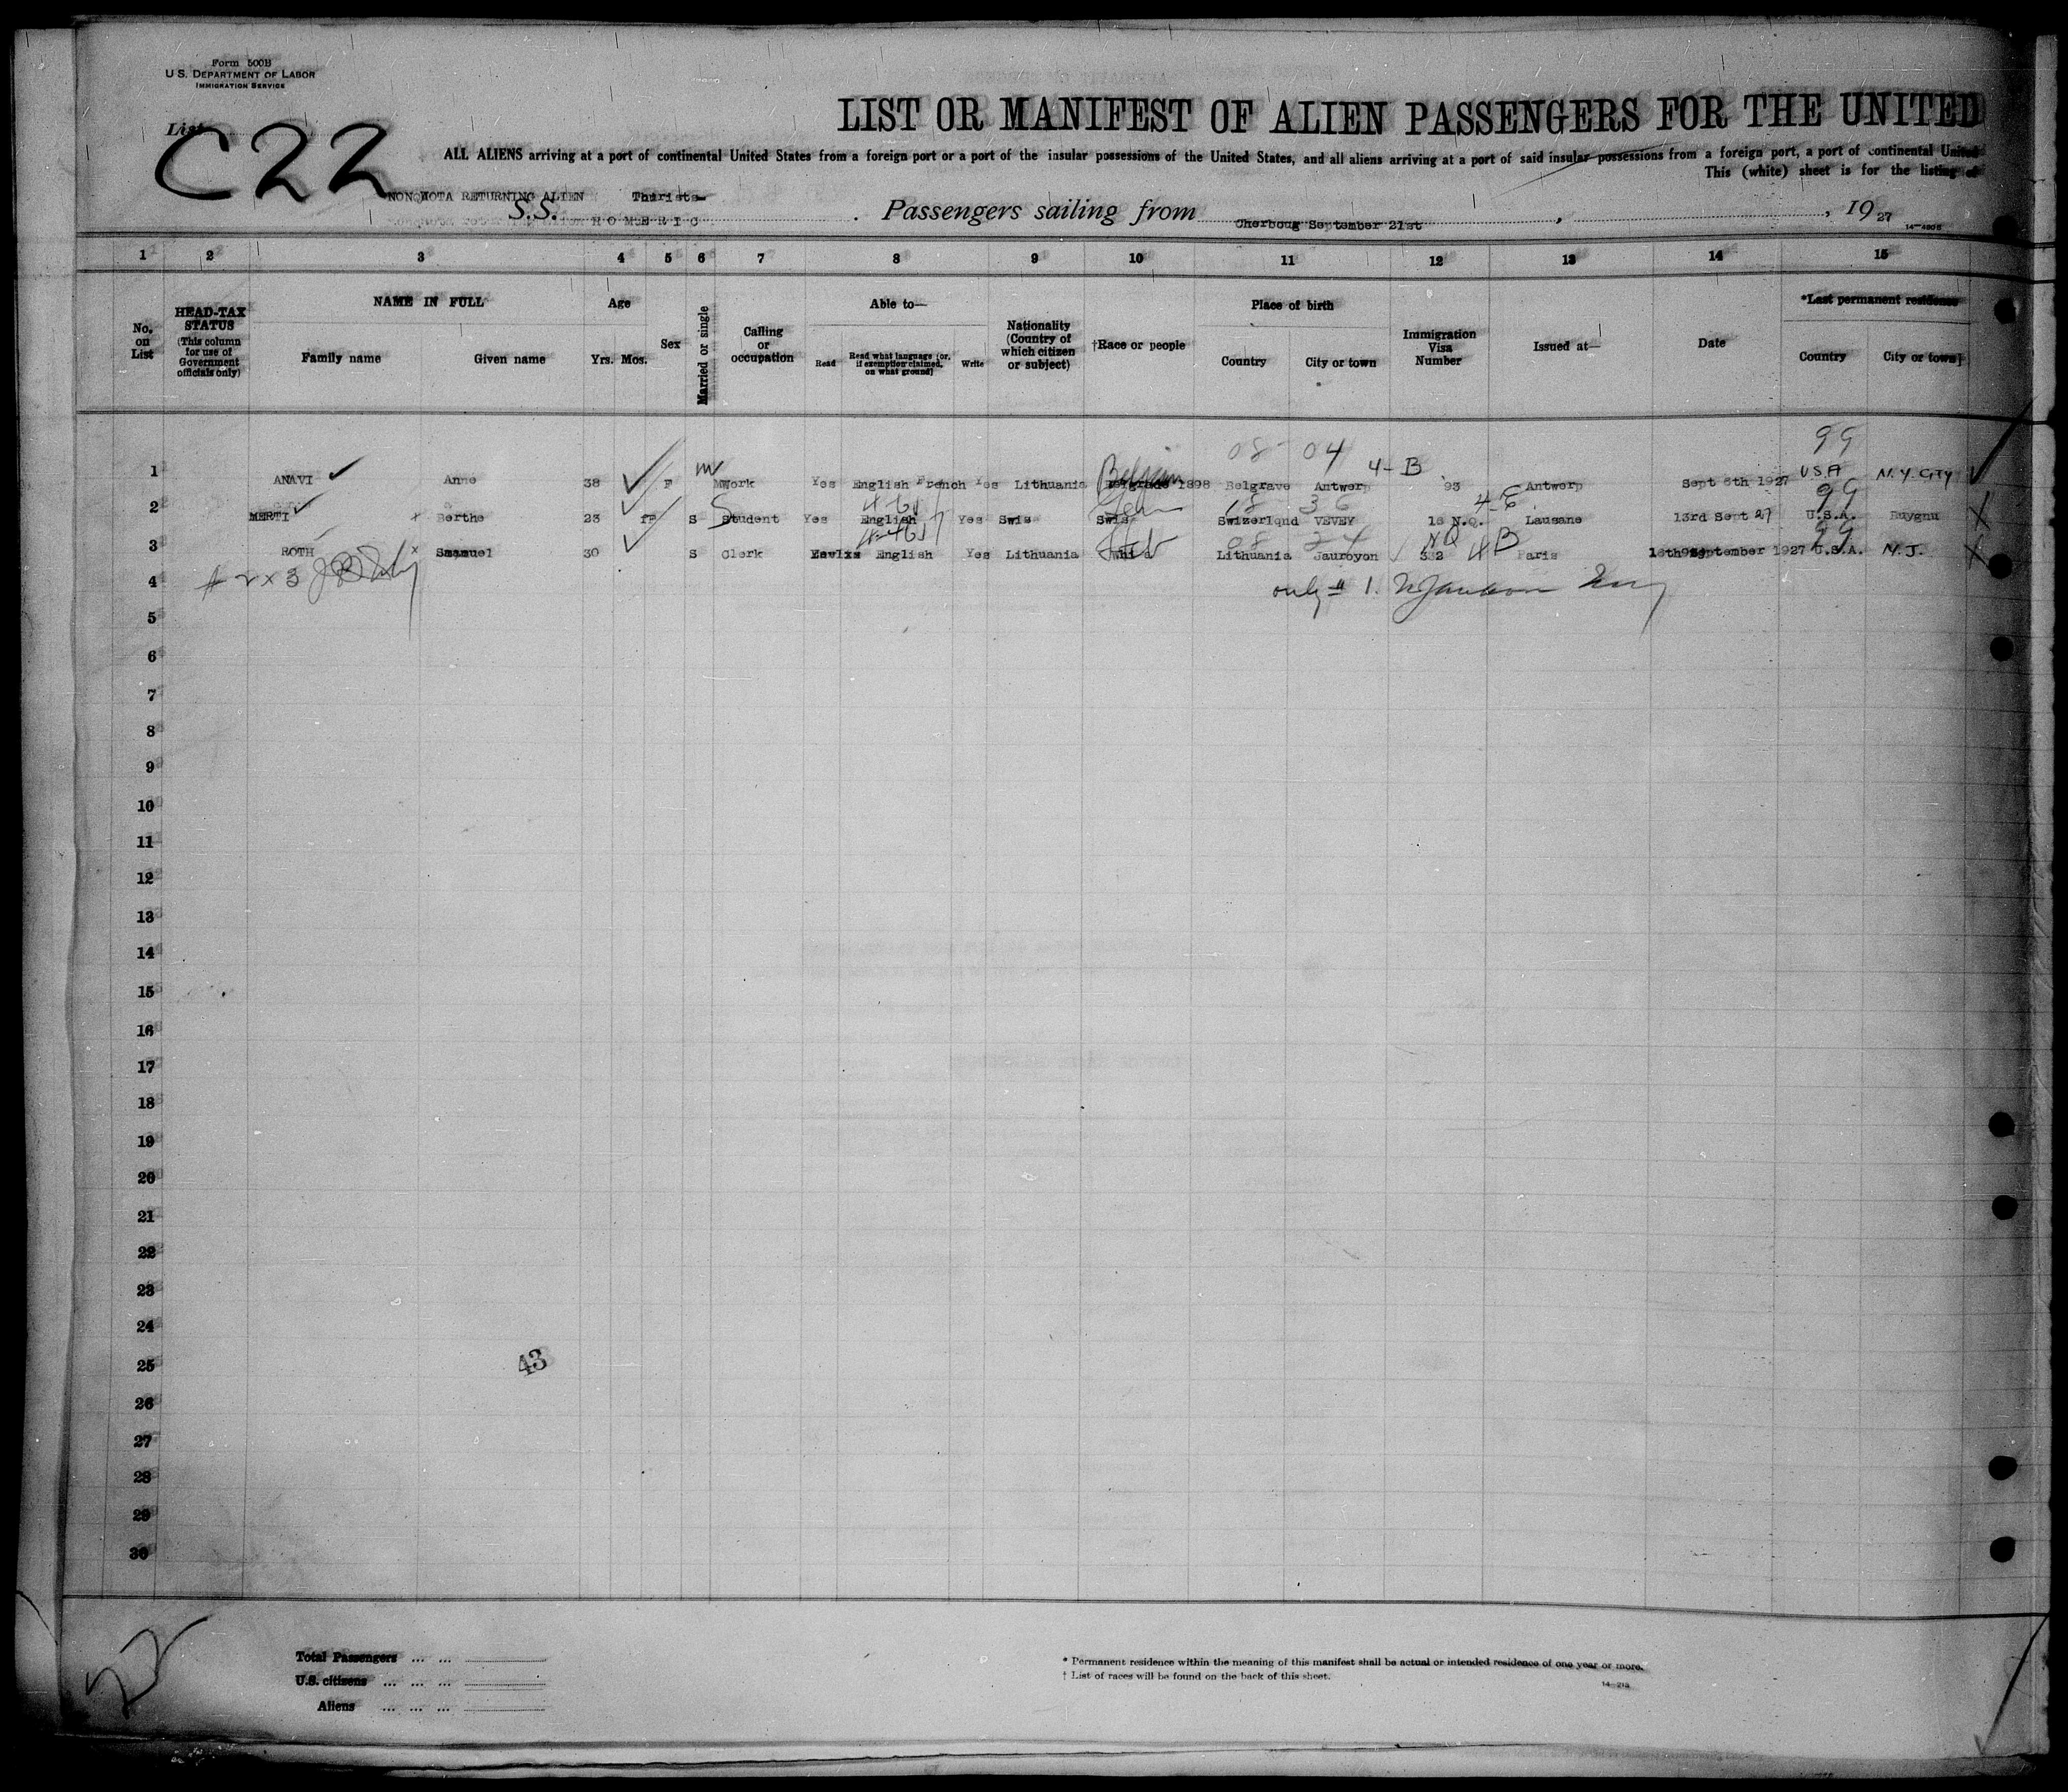 Form 500B
U.S. DEPARTMENT OF LABOR
IMMIGRATION SERVICE
LIST OR MANIFEST OF ALIEN PASSENGERS FOR THE UNITED
List
C22
ALL ALIENS arriving at a port of continental United States from a foreign port or a port of the insular possessions of the United States, and all aliens arriving at a port of said insular possessions from a foreign port, a port of continental United
This (white) sheet is for the listing of
NONQUOTA RETURNING ALIEN
S.S. HOMERIC Passengers sailing from Cherboug September 21st , 1927
14—480 B
1 2 3 4 5 6 7 8 9 10 11 12 13 14 15
No. on List
HEAD-TAX STATUS (This column for use of Government officials only)
NAME IN FULL
Family name Given name
Age
Yrs. Mos.
Sex
Married or single
Calling or occupation
Able to—
Read Read what language (or, if exemption claimed, on what ground) Write
Nationality (Country of which citizen or subject)
†Race or people
Place of birth
Country City or town
Immigration Visa Number
Issued at—
Date
*Last permanent residence
Country City or town
08 04 99
1 ANAVI Anne 38 F M Work Yes English French Yes Lithuania Belgian 1898 Belgrave Antwerp 4-B 93 Antwerp Sept 6th 1927 USA N.Y. CITY
18 36 4-E 99
2 MERTI x Berthe 23 F S Student Yes English Yes Swis Swis Swizerlqnd VEVEY 16 N.Q. Lausane 13rd Sept 27 U.S.A.
08 34 NQ 4 B 99
3 ROTH x Samuel 30 S Clerk English Yes Lithuania Lithuania Jauroyon 332 Paris September 1927 U.S.A. N.J.
4 # 2 x 3 only # 1.
5
6
7
8
9
10
11
12
13
14
15
16
17
18
19
20
21
22
23
24
25
43
26
27
28
29
30
22
Total Passengers ... ...
U.S. citizens ... ... ...
Aliens ... ... ...
* Permanent residence within the meaning of this manifest shall be actual or intended residence of one year or more.
† List of races will be found on the back of this sheet.